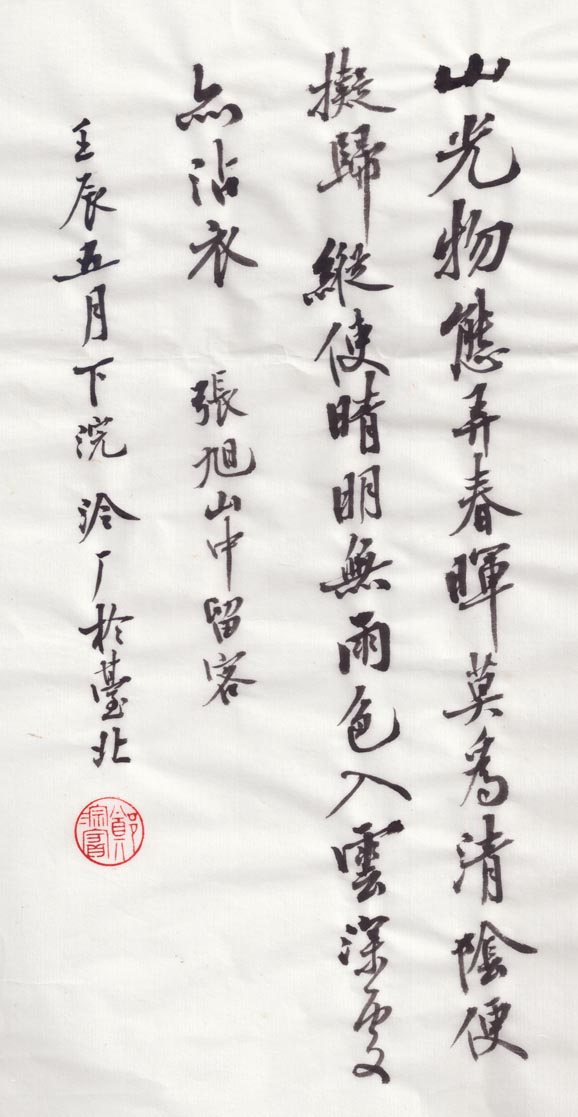 山光物態弄春暉莫為清陰便
擬歸縱使晴明無雨色入雲深處
亦沾衣 張旭山中留客
壬辰五月下浣 厂於臺北